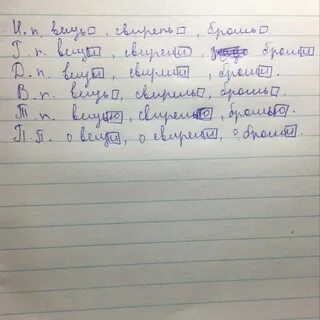 И. п. вещь□, свирель□, брошь□.
Р. п. вещи, свирели, броши
Д. п. вещи, свирели, броши.
В. п. вещь□, свирель□, брошь□.
Т. п. вещью, свирелью, брошью.
П. п. о вещи, о свирели, о броши